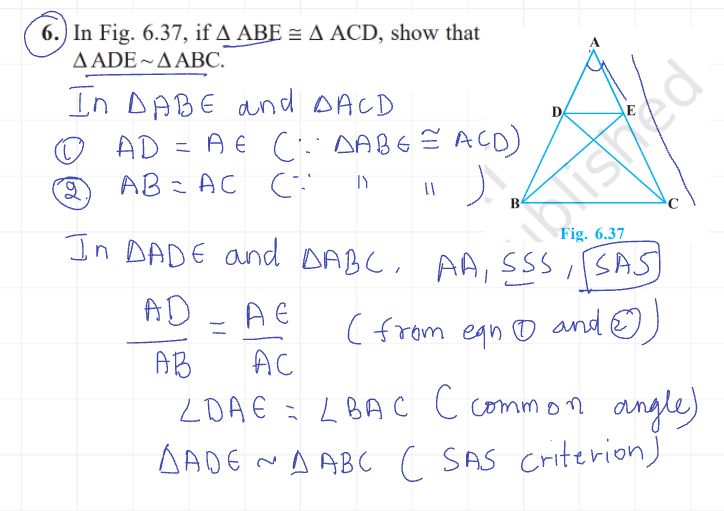 6. In Fig. 6.37, if Δ ABE ≅ Δ ACD, show that
Δ ADE ~ Δ ABC.
A
D
E
B
C
Fig. 6.37
In ΔABE and ΔACD
① AD = AE (∵ ΔABE ≅ ACD)
②. AB = AC (∵ " " )
In ΔADE and ΔABC. AA, SSS, SAS
AD/AB = AE/AC (from eqn ① and ②)
∠DAE = ∠BAC (common angle)
ΔADE ~ ΔABC (SAS criterion)